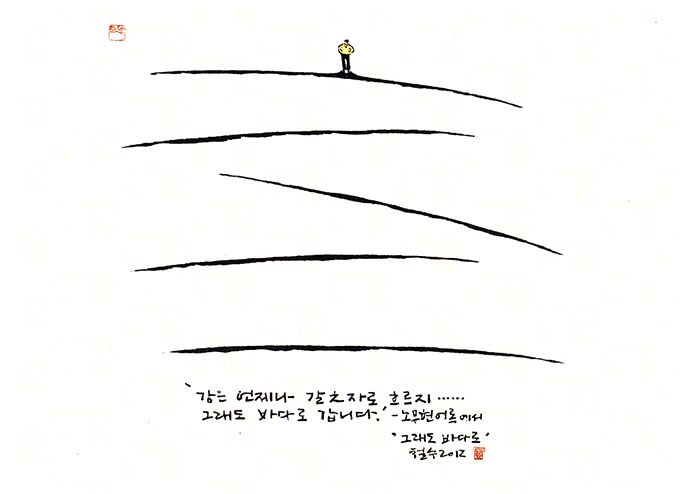 '강은 언제나 갈 之자로 흐르지 ……
그래도 바다로 갑니다.' - 노무현어록에서
'그래도 바다로'
철수 2012